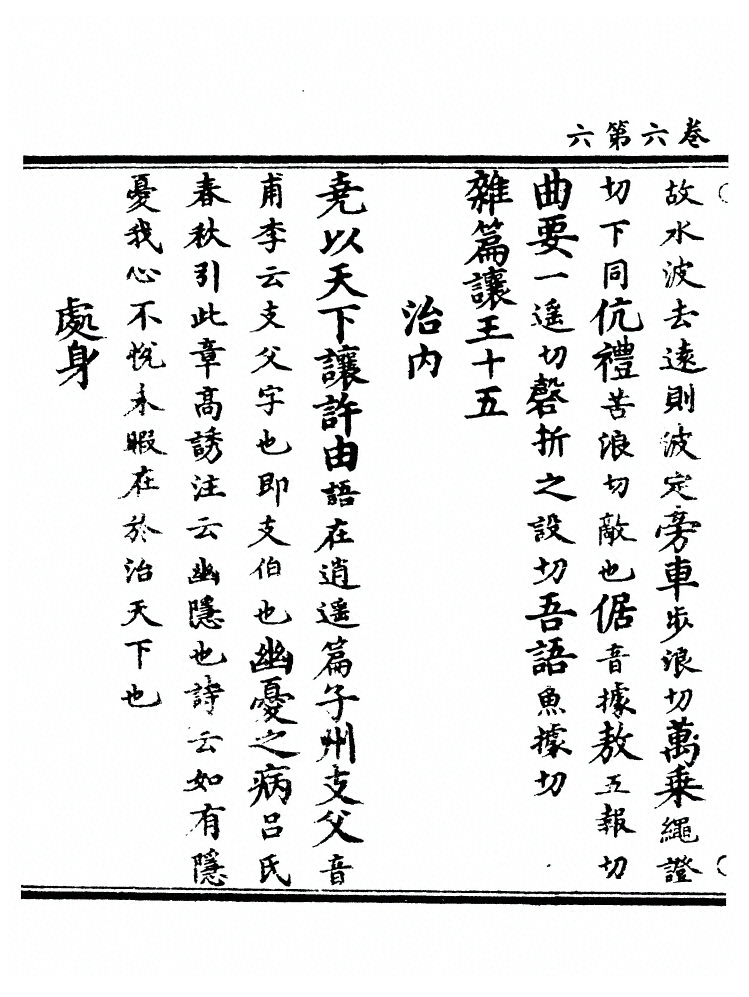 卷六第六
故水波去遠則波定旁車步浪切萬乘繩證
切下同伉禮苦浪切敵也倨音據敖五報切
曲要一遥切磬折之設切吾語魚據切
雜篇讓王十五
治内
尭以天下讓許由語在逍遥篇子州支父音
甫李云支父字也即支伯也幽憂之病吕氏
春秋引此章高誘注云幽隱也詩云如有隱
憂我心不悅未暇在於治天下也
處身